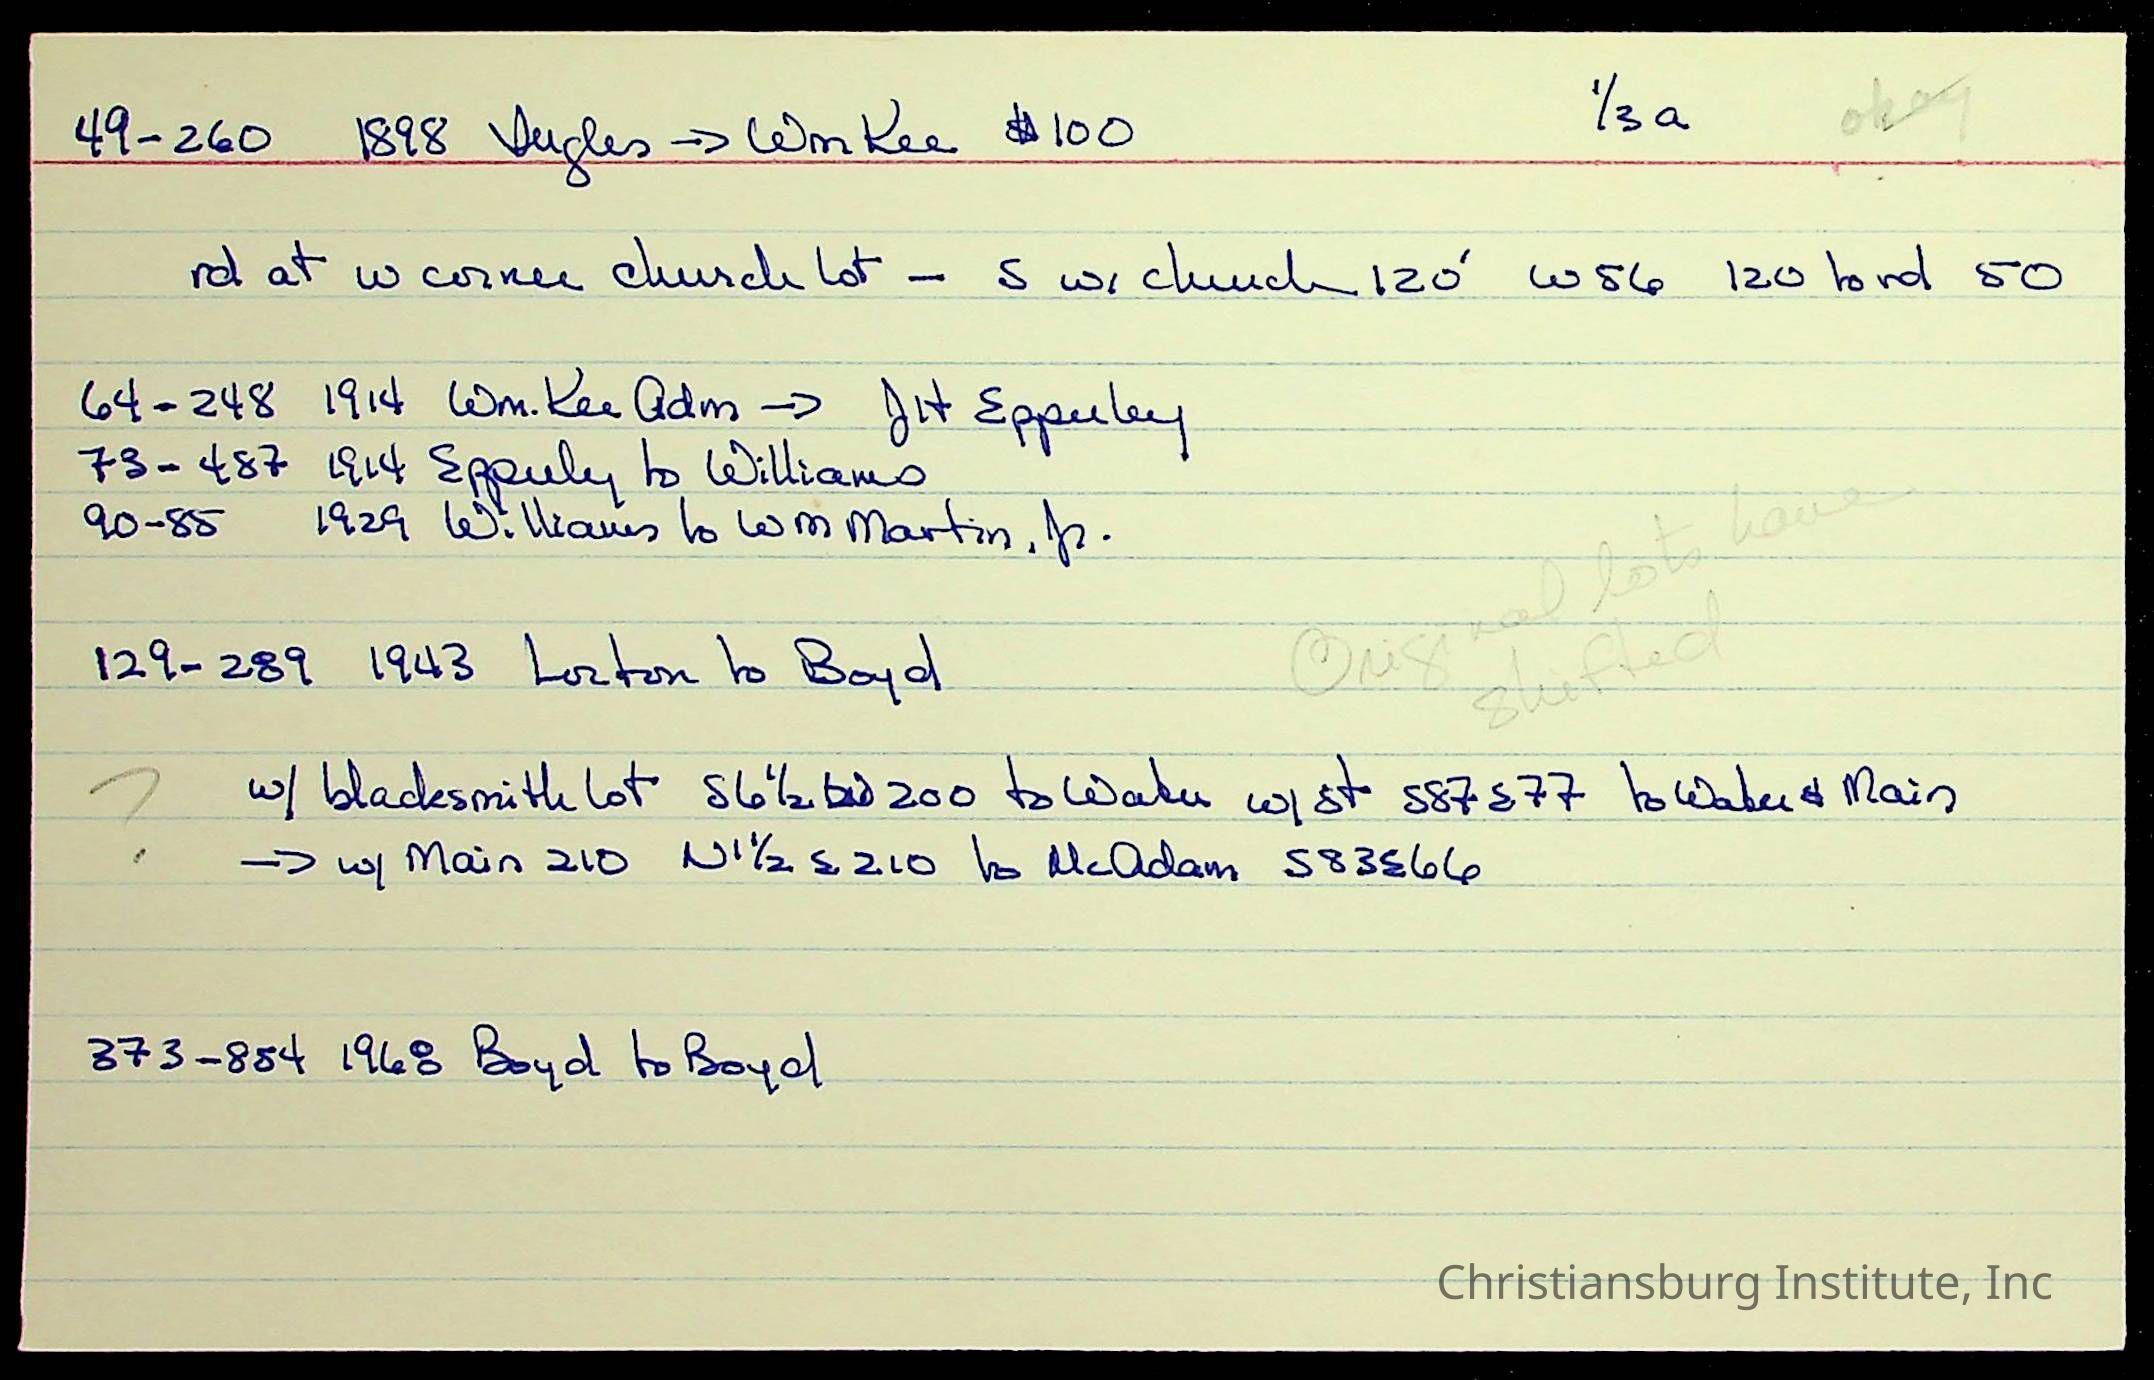 49-260 1898 Ingles → Wm Kee $100 1/3 a okay
rd at w corner church lot - S w/ church 120' W56 120 to rd 50
64-248 1914 Wm. Kee Adm → JH Epperley
73-487 1914 Epperly to Williams
90-85 1929 Williams to Wm Martin, Jr.
Original lots have
shifted
129-289 1943 Lorton to Boyd
? w/ blacksmith lot S6½ 200 to Water w/ st S87E77 to Water & Main
→ w/ Main 210 N1½E210 to McAdam S83E66
373-854 1968 Boyd to Boyd
Christiansburg Institute, Inc